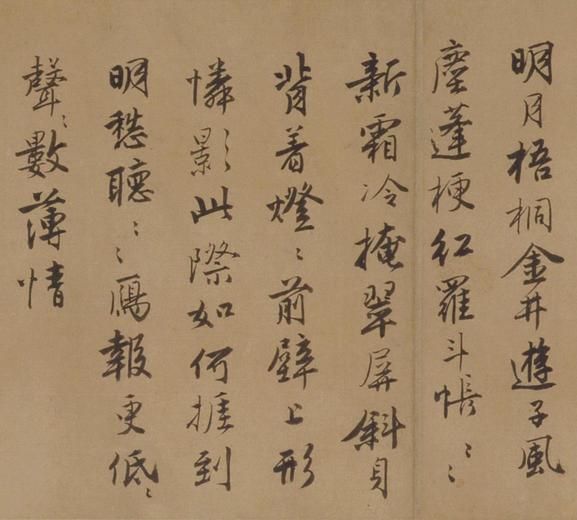 明月梧桐金井遊子風
塵蓬梗紅羅斗帳〻〻
新霜冷掩翠屏斜貟
背着燈〻前壁上形
憐影此際如何捱到
明愁聽〻〻鴈報更低〻
聲〻數薄情